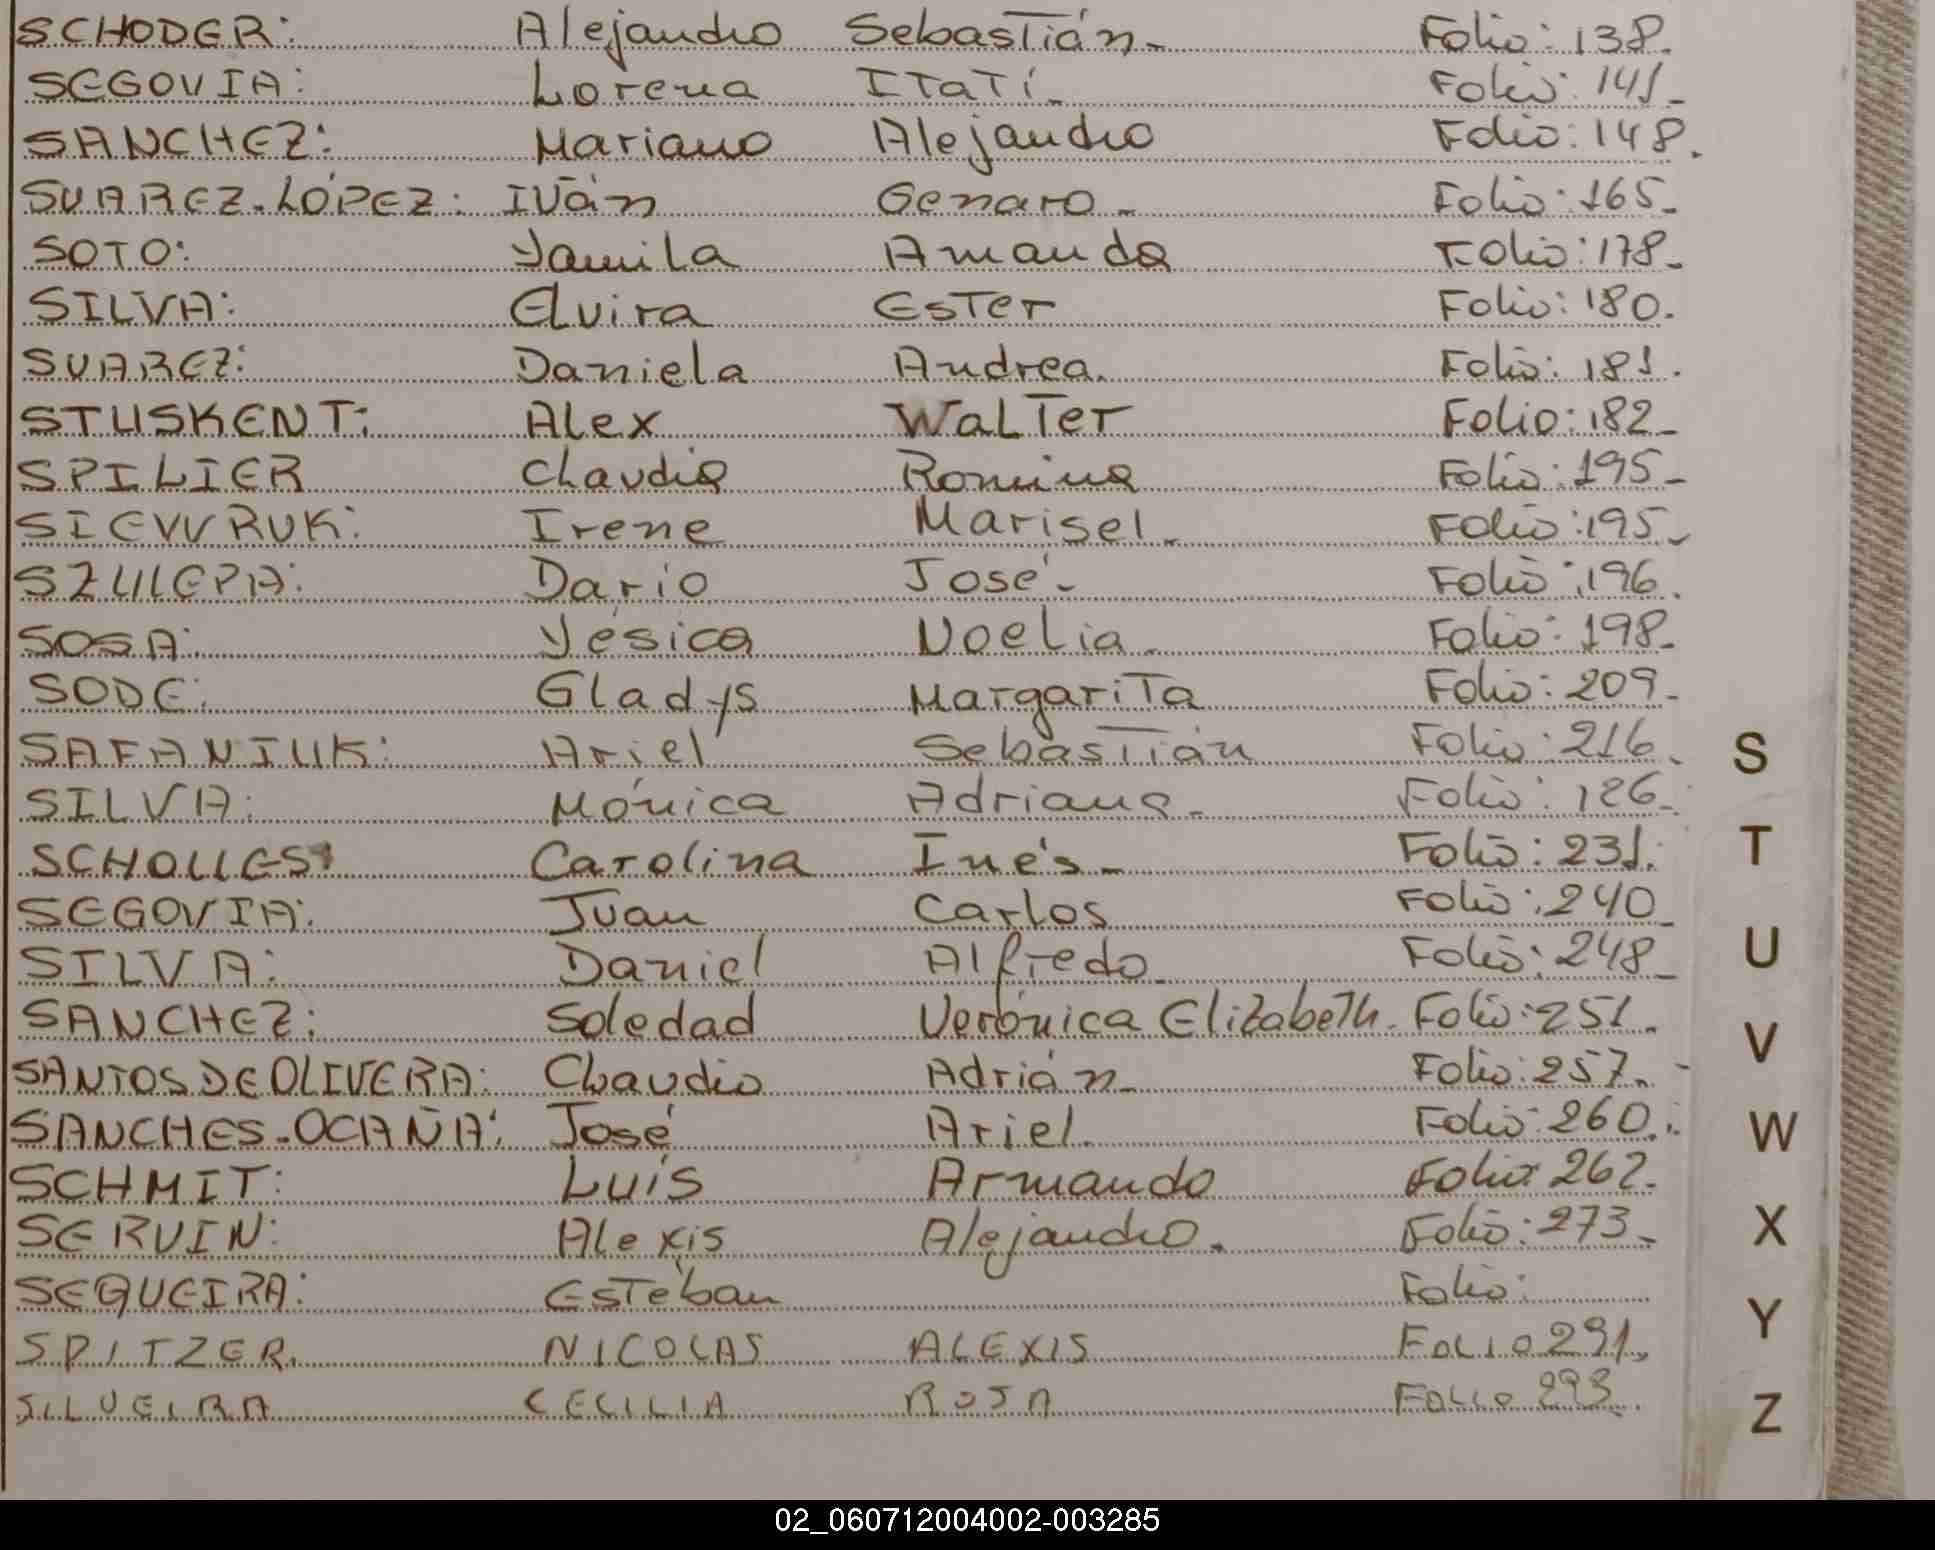 SCHODER: Alejandro Sebastián. Folio: 138.
SEGOVIA: Lorena Itatí. Folio: 141.
SANCHEZ: Mariano Alejandro Folio: 148.
SUAREZ-LÓPEZ: Iván Genaro. Folio: 165.
SOTO: Yamila Amanda Folio: 178.
SILVA: Elvira Ester Folio: 180.
SUAREZ: Daniela Andrea. Folio: 181.
STUSKENT: Alex Walter Folio: 182.
SPILIER Claudia Romina Folio: 195.
SIEVVRUK: Irene Marisel. Folio: 195.
SZULEPA: Dario José. Folio: 196.
SOSA: Yésica Noelia. Folio: 198.
SODE: Gladys Margarita Folio: 209.
SAFANIUK: Ariel Sebastián Folio: 216.
SILVA: Mónica Adriana. Folio: 126.
SCHOLLES: Carolina Inés. Folio: 231.
SEGOVIA: Juan Carlos Folio: 240.
SILVA: Daniel Alfredo. Folio: 248.
SANCHEZ: Soledad Verónica Elizabeth. Folio: 251.
SANTOS DE OLIVERA: Claudio Adrián. Folio: 257.
SANCHES-OCAÑA: José Ariel. Folio: 260.
SCHMIT: Luis Armando Folio: 262.
SERVIN: Alexis Alejandro. Folio: 273.
SEQUEIRA: Esteban Folio:
SPITZER. NICOLAS ALEXIS FOLIO 291.
SILVEIRA CECILIA ROSA FOLIO 293.
S
T
U
V
W
X
Y
Z
02_060712004002-003285